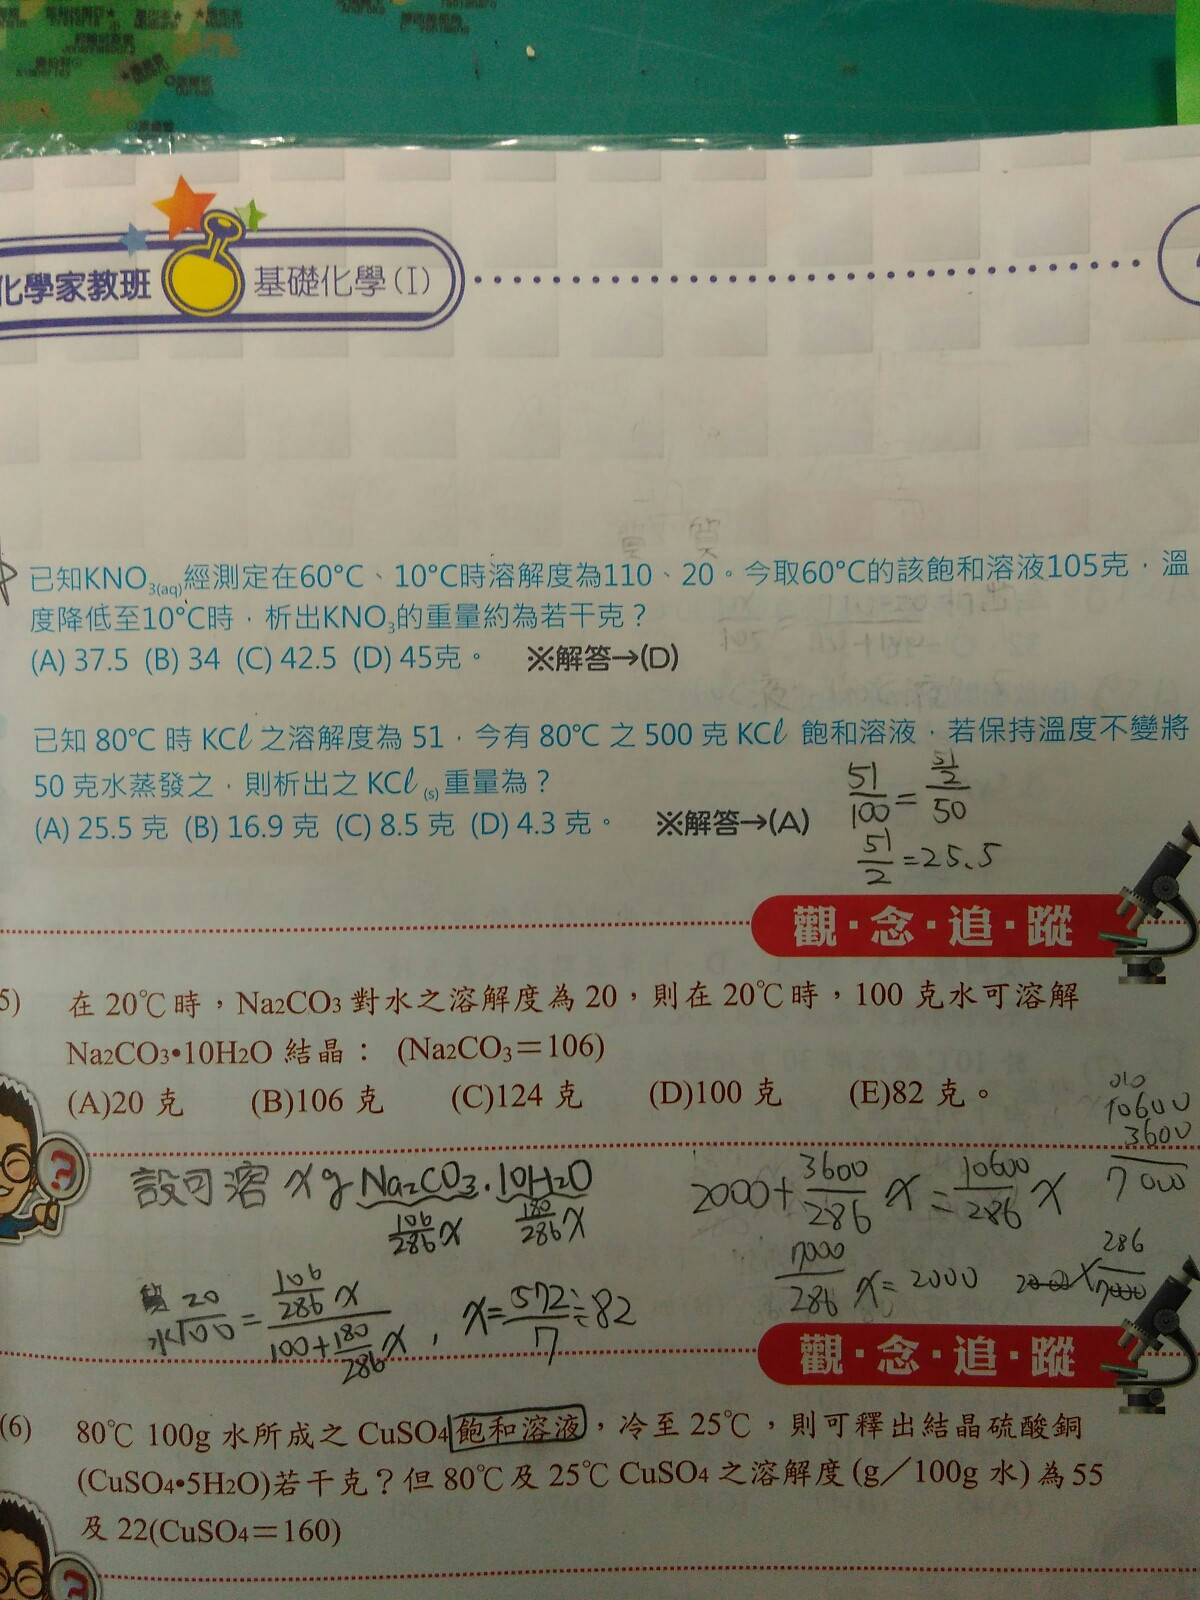 化學家教班 基礎化學(I)
已知KNO3(aq)經測定在60°C、10°C時溶解度為110、20。今取60°C的該飽和溶液105克，溫
度降低至10°C時，析出KNO3的重量約為若干克？
(A) 37.5 (B) 34 (C) 42.5 (D) 45克。 ※解答→(D)
已知 80°C 時 KCℓ 之溶解度為 51，今有 80°C 之 500 克 KCℓ 飽和溶液，若保持溫度不變將
50 克水蒸發之，則析出之 KCℓ(s) 重量為？
(A) 25.5 克 (B) 16.9 克 (C) 8.5 克 (D) 4.3 克。 ※解答→(A)
51/100 = (51/2)/50
51/2 = 25.5
觀・念・追・蹤
5) 在 20℃時，Na2CO3 對水之溶解度為 20，則在 20℃時，100 克水可溶解
Na2CO3•10H2O 結晶： (Na2CO3＝106)
(A)20 克 (B)106 克 (C)124 克 (D)100 克 (E)82 克。
10600
3600
7000
設可溶 x g Na2CO3．10H2O
106/286 x 180/286 x
2000 + 3600/286 x = 10600/286 x
7000/286 x = 2000 2000 × 286/7000
質 20/水100 = (106/286 x)/(100 + 180/286 x) , x = 572/7 ≒ 82
觀・念・追・蹤
(6) 80℃ 100g 水所成之 CuSO4 飽和溶液，冷至 25℃，則可釋出結晶硫酸銅
(CuSO4•5H2O)若干克？但 80℃及 25℃ CuSO4 之溶解度(g／100g 水)為 55
及 22(CuSO4＝160)